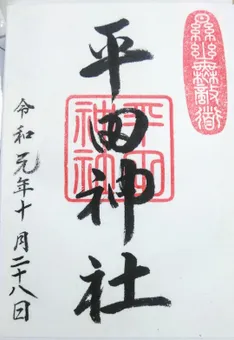 平田神社
平田
神社
令和元年十月二十八日